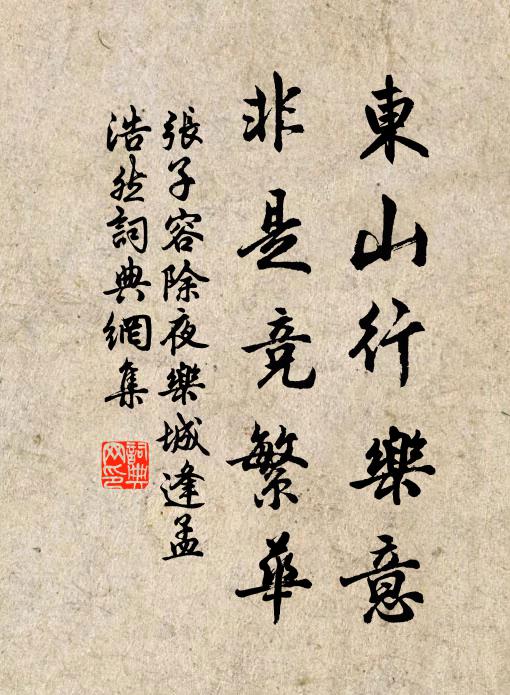 東山行樂意
非是竞繁華
張子容除夜樂城逢孟
浩然詞典網集
詞典
网印